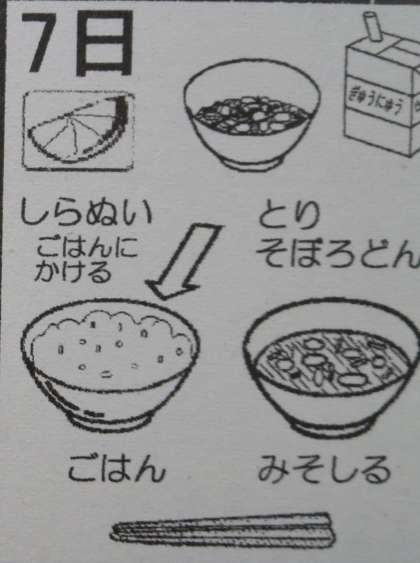 7日
ぎゅうにゅう
しらぬい
ごはんに
かける
とり
そぼろどん
ごはん
みそしる